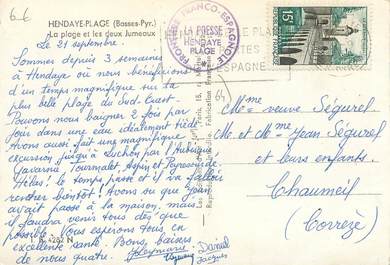 6_6
HENDAYE-PLAGE (Basses-Pyr.)
La plage et les deux Jumeaux
Le 21 septembre.
Sommes depuis 3 semaines
à Hendaye où nous bénéficions
d'un temps magnifique sur la
plus belle plage du Sud-Ouest.
Pouvons nous baigner 2 fois par
jour dans une eau idéalement tiède.
Avons aussi fait une magnifique
excursion jusqu'à Luchon par l'Aubisque
Gavarnie Tourmalet, Aspin et Peyresourde.
Hélas! le temps passe et il va falloir
rentrer bientôt! Avons su que Jean
avait passé à la maison, mais il
faudra venir tous dès que
possible. Vous espérons tous en
excellente santé. Bons baisers
de nous quatre.
Daniel
Jacques
LA PRESSE
HENDAYE
PLAGE
FRONTIÈRE FRANCO-ESPAGNOLE
PLAGE
ESPAGNE
15F
Mme veuve Ségurel
M. et Mme Jean Ségurel
et leurs enfants.
Chaumeil
(Corrèze)